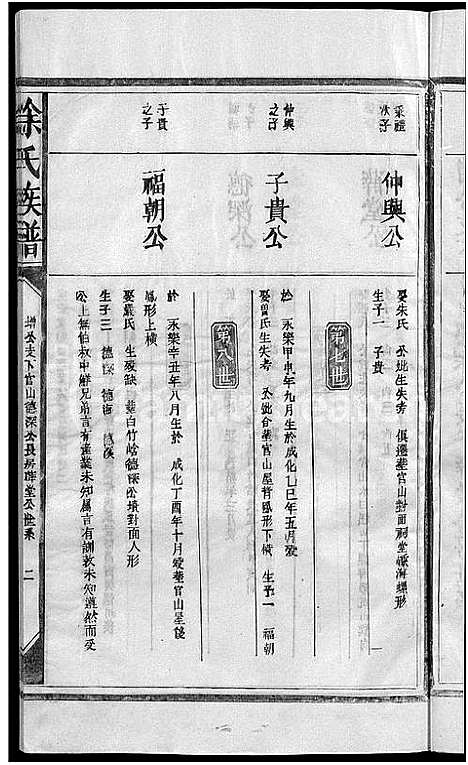 秉禮
次子
仲興公
娶朱氏 公妣生失考 俱遷葬官山對面祠堂
生子一 子貴
第七世
仲興
之子
子貴公
於 永樂甲申年九月生於成化乙巳年五月歿
娶曾氏生失考 公妣合葬官山屋背臥形下橫 生子一 福朝
第八世
子貴
之子
福朝公
於 永樂辛丑年八月生於 成化丁酉年十月歿葬官山屋後
鳳形上橫
娶嚴氏 生歿缺 葬白竹崎德深公墳對面人形
生子三 德深
公上無伯叔中鮮兄弟言有產業未知屬言有訓教未知遵然而受
徐氏族譜
增公支下官山德深公長房輝堂公世系 二